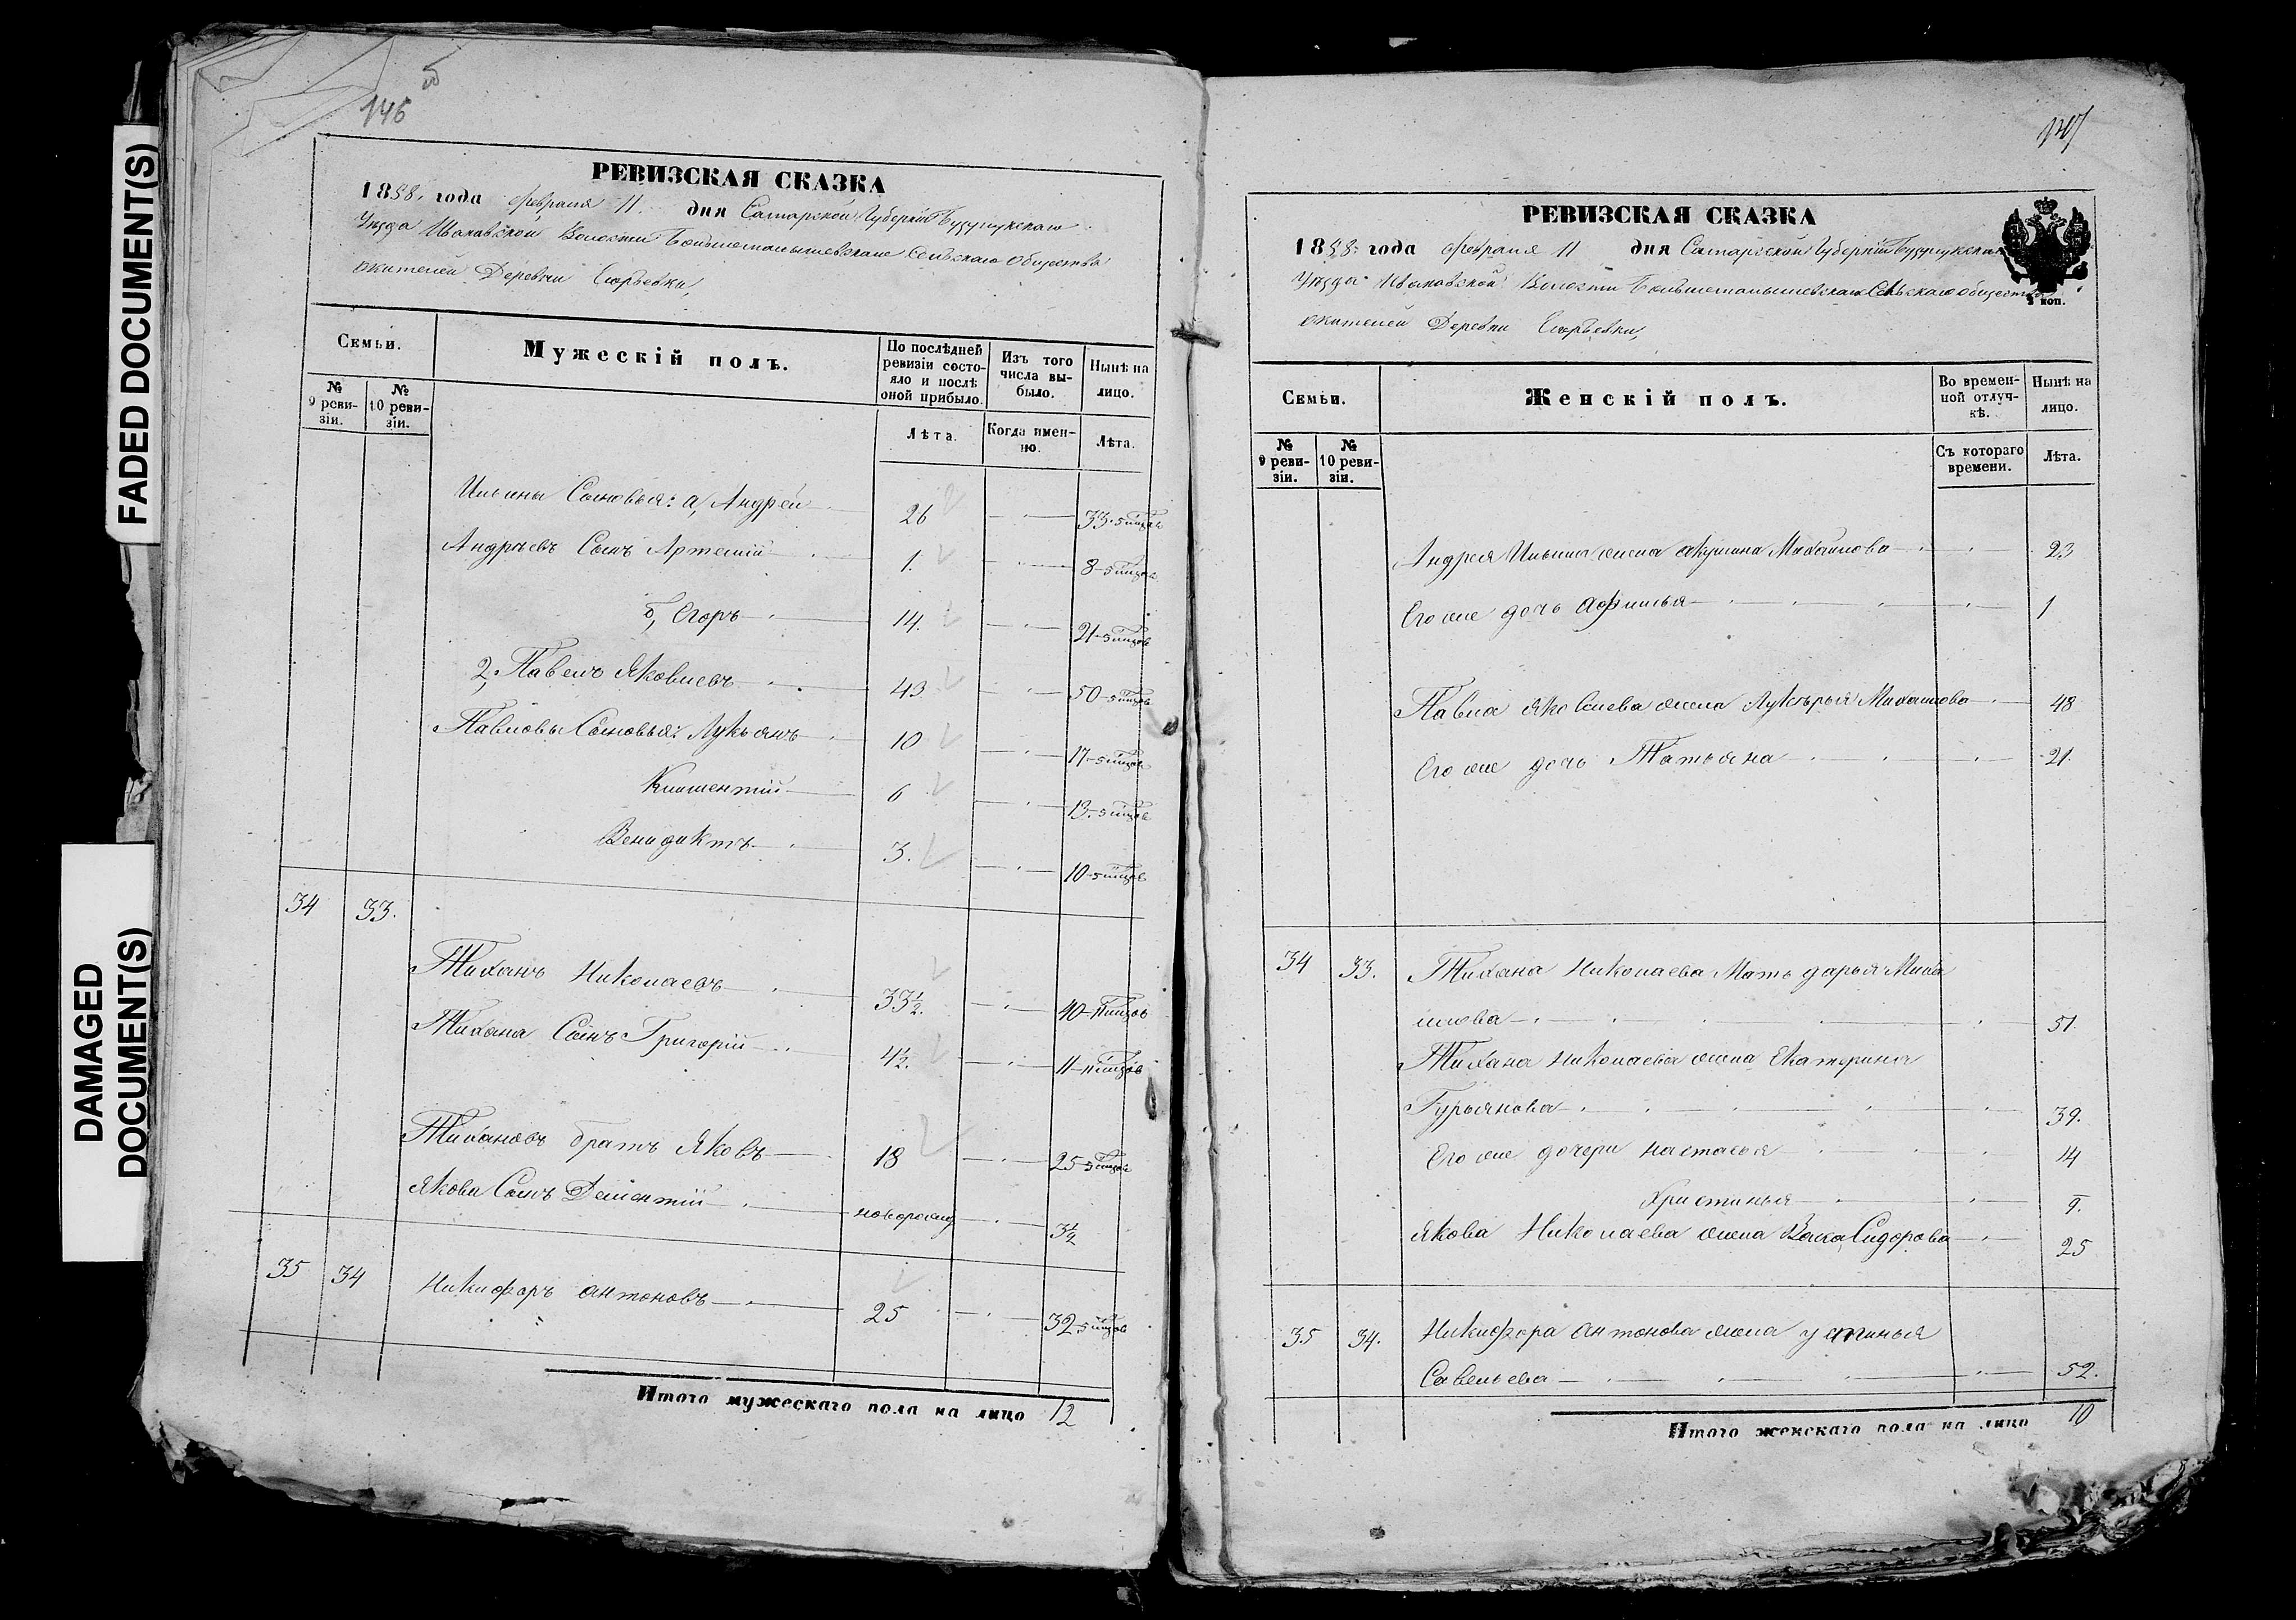 FADED DOCUMENT(S)
DAMAGED
DOCUMENT(S)
146
РЕВИЗСКАЯ СКАЗКА
1858. года февраля 11. дня Самарской Губерніи Бузулукскаго
Уѣзда Ивановской Волости Большемалышевскаго Сельскаго общества
жителей Деревни Егорьевки,
Семьи.
Мужескій полъ.
По послѣдней ревизіи состояло и послѣ оной прибыло.
Изъ того числа выбыло.
Нынѣ на лицо.
№ 9 ревизіи.
№ 10 ревизіи.
Лѣта.
Когда именно.
Лѣта.
Ильины Сыновья: а, Андрей 26 33
Андрѣевъ Сынъ Артемій 1. 8
б, Егоръ 14. 21
2, Павелъ Яковлевъ 43 50
Павловы Сыновья: Лукьянъ 10 17
Климентій 6 13
Венидиктъ 3. 10
34 33.
Тиханъ Николаевъ 33½. 40
Тихана Сынъ Григорій 4½. 11
Тихановъ братъ Яковъ 18 25
Якова Сынъ Дементій новорожд 3½
35 34 Никифоръ антоновъ 25 32
Итого мужескаго пола на лицо 12
147
РЕВИЗСКАЯ СКАЗКА
1858. года февраля 11 дня Самарской Губерніи Бузулукскаго
Уѣзда Ивановской Волости Большемалышевскаго Сельскаго общества
жителей Деревни Егорьевки,
коп.
Семьи.
Женскій полъ.
Во временной отлучкѣ.
Нынѣ на лицо.
№ 9 ревизіи.
№ 10 ревизіи.
Съ котораго времени.
Лѣта.
Андрея Ильина жена Акулина Михайлова 23
Его же дочь Афимья 1
Павла Яковлева жена Лукѣрья Михайлова 48
Его же дочь Татьяна 21.
34 33. Тихана Николаева Мать дарья Миха
илова 51.
Тихана Николаева жена Екатерина
Гурьянова 39.
Его же дочери настасья 14
Христинья 9.
Якова Николаева жена Васса Сидорова 25
35 34. Никифора Антонова жена устинья
Савельева 52.
Итого женскаго пола на лицо 10